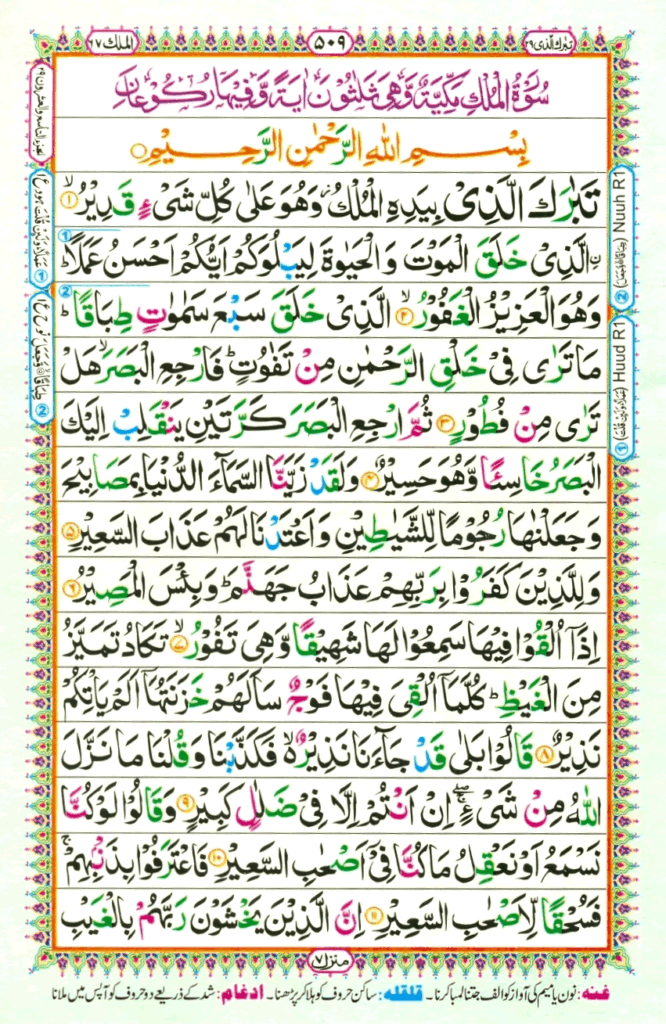 تبٰرک الذی ۲۹
۵۰۹
الملک ۶۷
سُوۡرَۃُ الْمُلْكِ مَكِّیَّةٌ وَّهِیَ ثَلٰثُوۡنَ اٰیَةً وَّفِیۡهَا رُكُوۡعَانِ
بِسۡمِ اللّٰهِ الرَّحۡمٰنِ الرَّحِیۡمِ
تَبٰرَكَ الَّذِیۡ بِیَدِهِ الْمُلْكُ ؗ وَهُوَ عَلٰی كُلِّ شَیۡءٍ قَدِیۡرُ ۙ﴿۱﴾
ِ۟الَّذِیۡ خَلَقَ الْمَوۡتَ وَالْحَیٰوةَ لِیَبۡلُوَكُمۡ اَیُّكُمۡ اَحۡسَنُ عَمَلًا ؕ
وَهُوَ الْعَزِیۡزُ الْغَفُوۡرُ ۙ﴿۲﴾ الَّذِیۡ خَلَقَ سَبۡعَ سَمٰوٰتٍ طِبَاقًا ؕ
مَا تَرٰی فِیۡ خَلْقِ الرَّحۡمٰنِ مِنۡ تَفٰوُتٍ ؕ فَارۡجِعِ الْبَصَرَ ۙ هَلۡ
تَرٰی مِنۡ فُطُوۡرٍ ﴿۳﴾ ثُمَّ ارۡجِعِ الْبَصَرَ كَرَّتَیۡنِ یَنۡقَلِبۡ اِلَیۡكَ
الْبَصَرُ خَاسِئًا وَّهُوَ حَسِیۡرٌ ﴿۴﴾ وَلَقَدۡ زَیَّنَّا السَّمَآءَ الدُّنۡیَا بِمَصَابِیۡحَ
وَجَعَلۡنٰهَا رُجُوۡمًا لِّلشَّیٰطِیۡنِ وَاَعۡتَدۡنَا لَهُمۡ عَذَابَ السَّعِیۡرِ ﴿۵﴾
وَلِلَّذِیۡنَ كَفَرُوۡا بِرَبِّهِمۡ عَذَابُ جَهَنَّمَ ؕ وَبِئۡسَ الْمَصِیۡرُ ﴿۶﴾
اِذَاۤ اُلْقُوۡا فِیۡهَا سَمِعُوۡا لَهَا شَهِیۡقًا وَّهِیَ تَفُوۡرُ ۙ﴿۷﴾ تَكَادُ تَمَیَّزُ
مِنَ الْغَیۡظِ ؕ كُلَّمَاۤ اُلْقِیَ فِیۡهَا فَوۡجٌ سَاَلَهُمۡ خَزَنَتُهَاۤ اَلَمۡ یَاۡتِكُمۡ
نَذِیۡرٌ ﴿۸﴾ قَالُوۡا بَلٰی قَدۡ جَآءَنَا نَذِیۡرٌ ۙ۬ فَكَذَّبۡنَا وَقُلۡنَا مَا نَزَّلَ
اللّٰهُ مِنۡ شَیۡءٍ ۚۖ اِنۡ اَنۡتُمۡ اِلَّا فِیۡ ضَلٰلٍ كَبِیۡرٍ ﴿۹﴾ وَقَالُوۡا لَوۡ كُنَّا
نَسۡمَعُ اَوۡ نَعۡقِلُ مَا كُنَّا فِیۡۤ اَصۡحٰبِ السَّعِیۡرِ ﴿۱۰﴾ فَاعۡتَرَفُوۡا بِذَنۡۢبِهِمۡ ۚ
فَسُحۡقًا لِّاَصۡحٰبِ السَّعِیۡرِ ﴿۱۱﴾ اِنَّ الَّذِیۡنَ یَخۡشَوۡنَ رَبَّهُمۡ بِالْغَیۡبِ
منزل ۷
غنہ: نون یا میم کی آواز کو الف جتنا لمبا کرنا۔ قلقلہ: ساکن حروف کو ہلا کر پڑھنا۔ ادغام: شد کے ذریعے دو حروف کو آپس میں ملانا
Nuuh R1
Huud R1